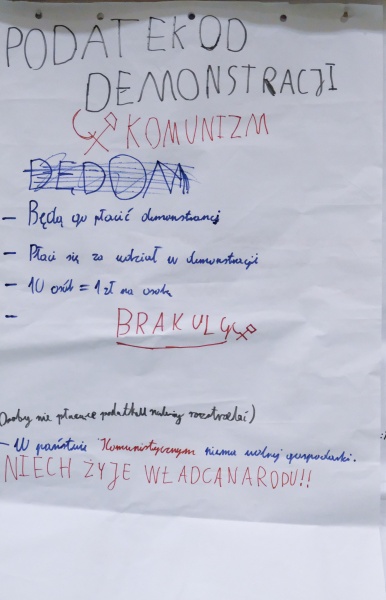 PODATEK OD
DEMONSTRACJI
KOMUNIZM
BĘDOM
- Będą go płacić demonstranci
- Płaci się za udział w demonstracji
- 10 osób = 1 zł na osobę
-
BRAK ULG
Osoby nie płacące podatku należy rozstrzelać)
- W państwie Komunistycznym niema wolnej gospodarki.
NIECH ŻYJE WŁADCA NARODU!!